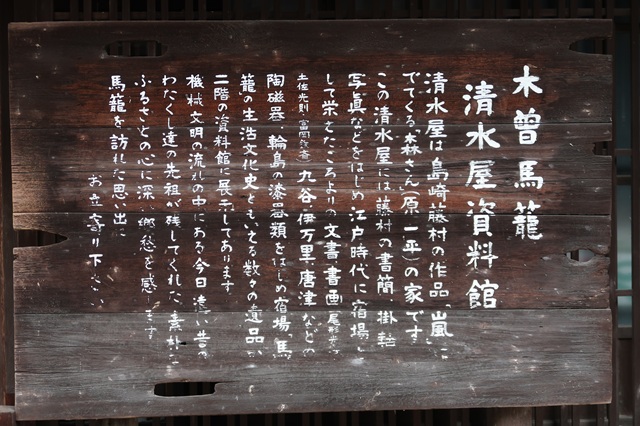 木曽馬籠
清水屋資料館
清水屋は島崎藤村の作品「嵐」に
でてくる「森さん」(原一平)の家です
この清水屋には藤村の書簡、掛軸
写真などをはじめ江戸時代に宿場と
して栄えたころよりの文書、書画(尾形光
土佐光則・富岡鉄斎)九谷・伊万里・唐津などの
陶磁器、輪島の漆器類をはじめ宿場、馬
籠の生活文化史ともいえる数々の遺品が
二階の資料館に展示してあります
機械文明の流れの中にある今日遠い昔の
わたくし達の先祖が残してくれた素朴な
ふるさとの心に深い郷愁を感じます
馬籠を訪れた思い出に
お立寄り下さい